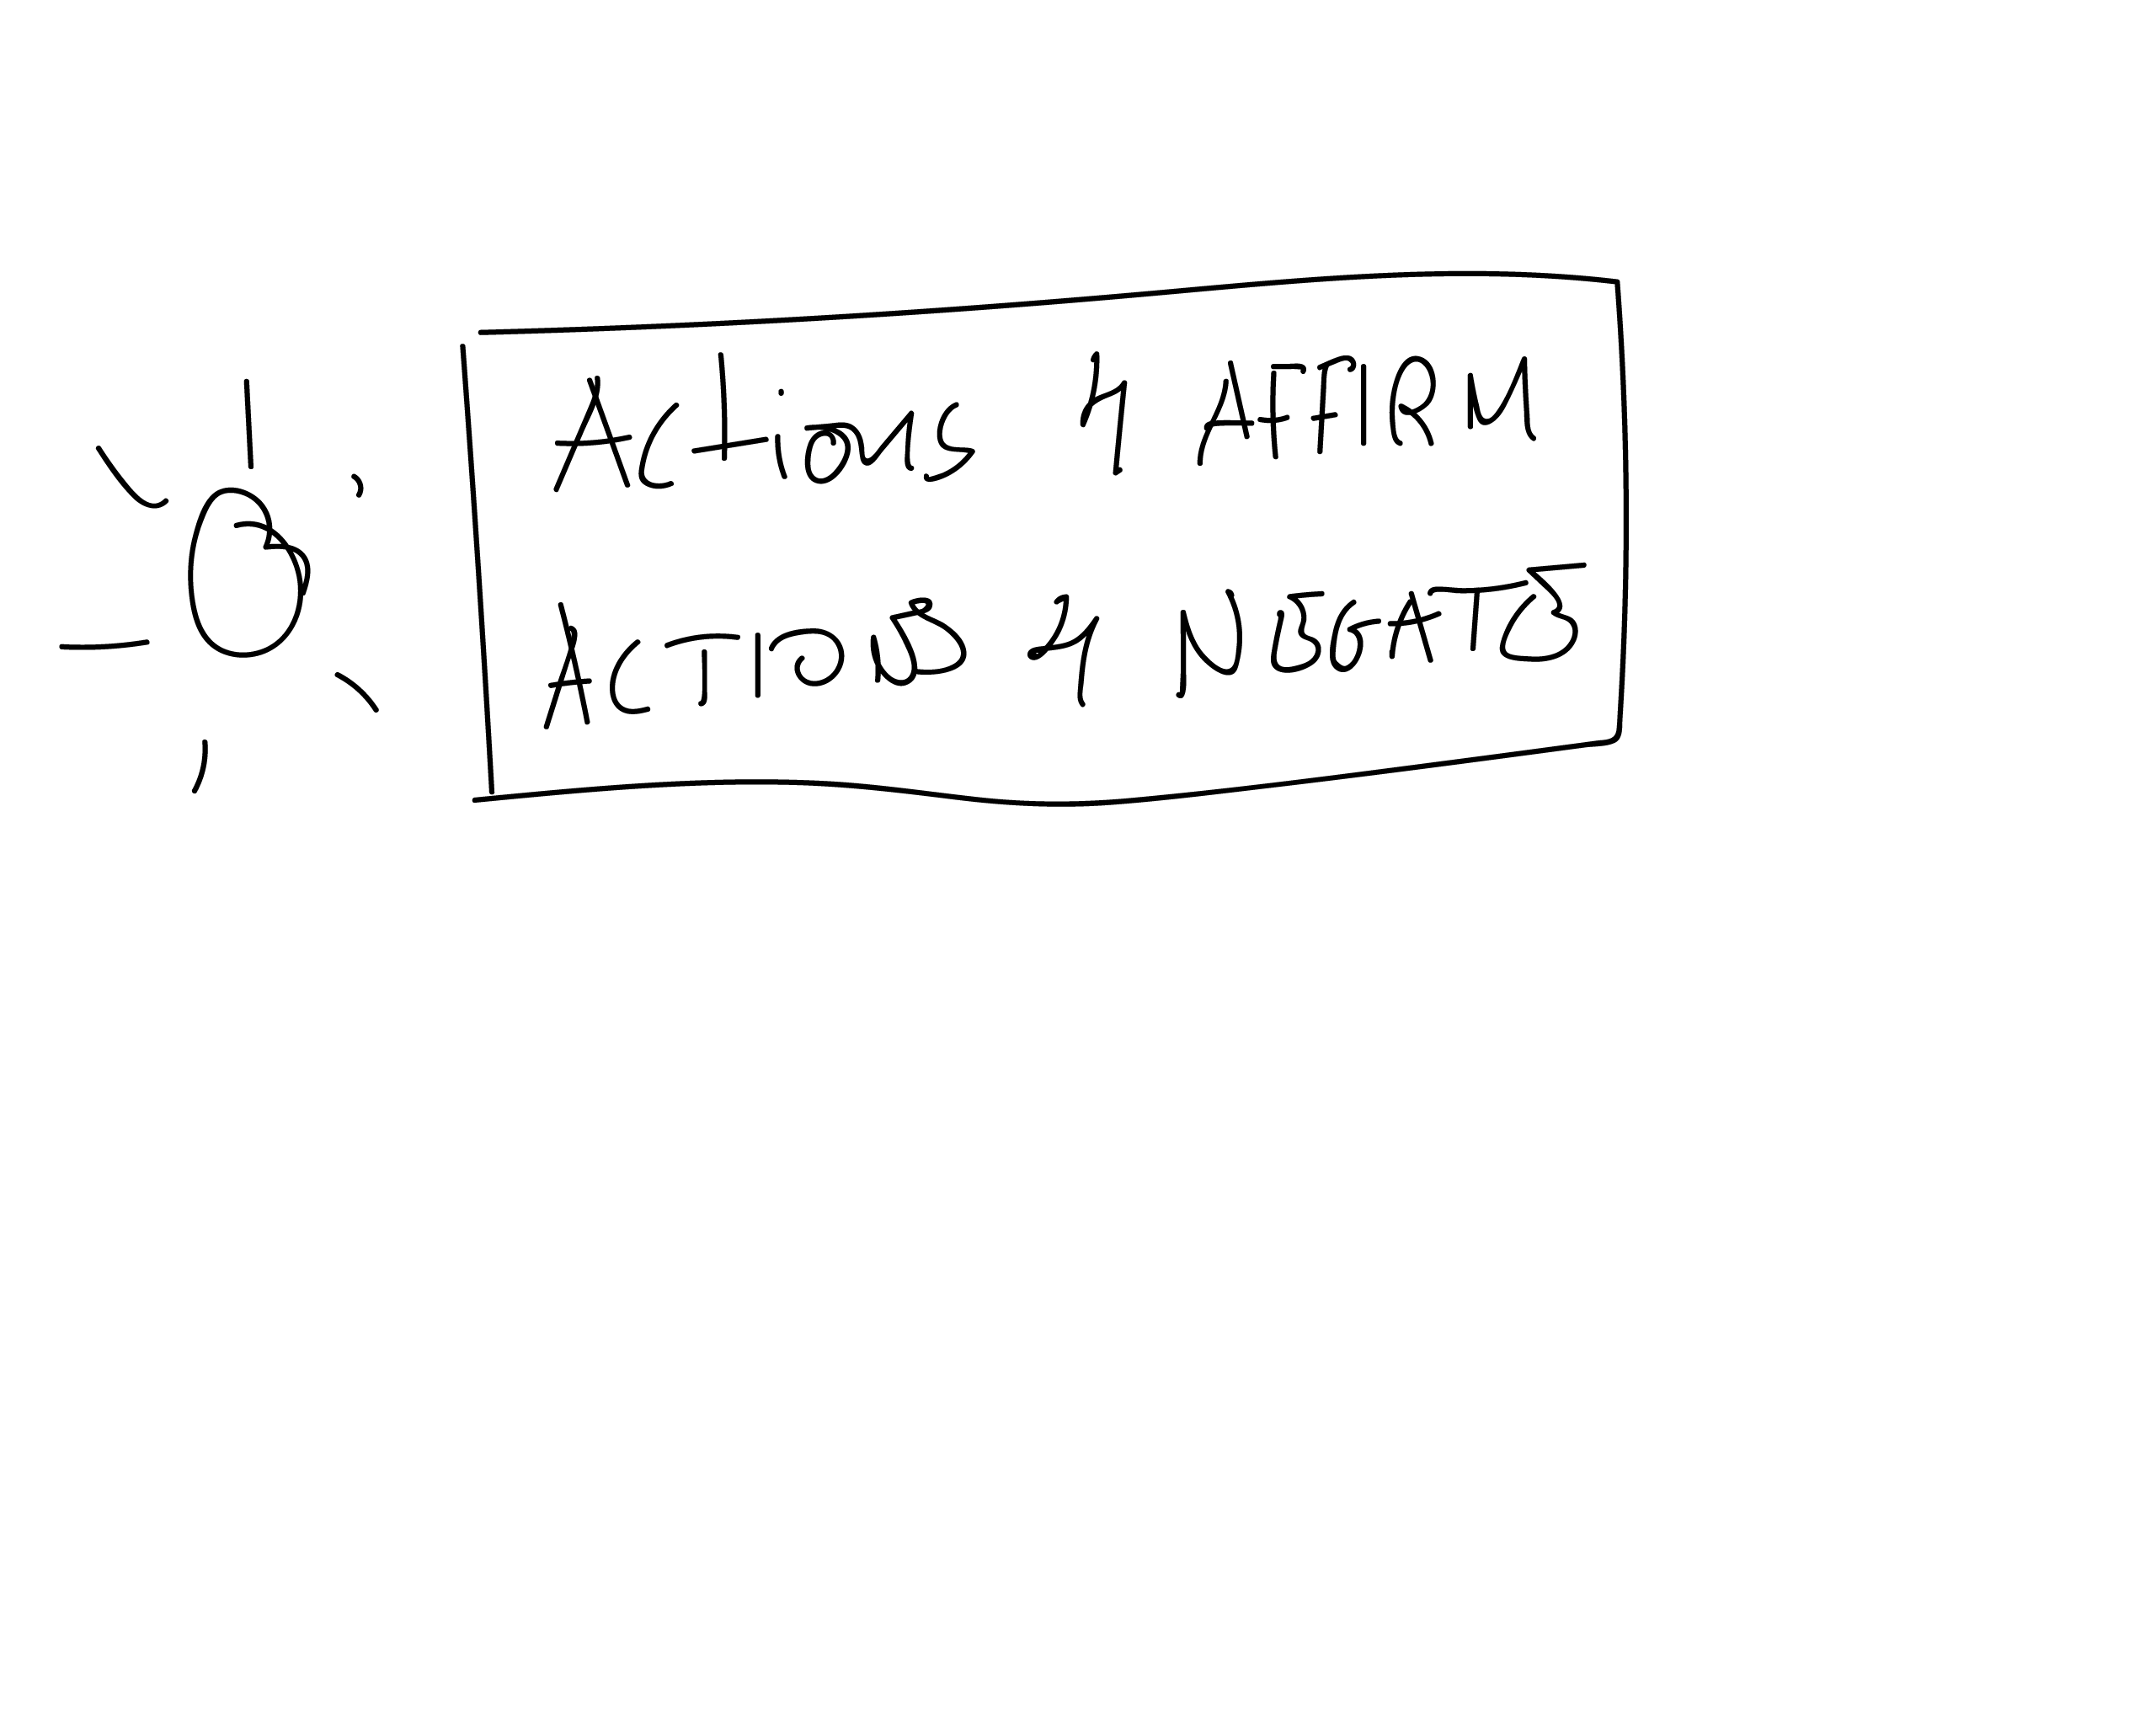 Actions 4 AFFIRM
ACTIONS 4 NEGATE